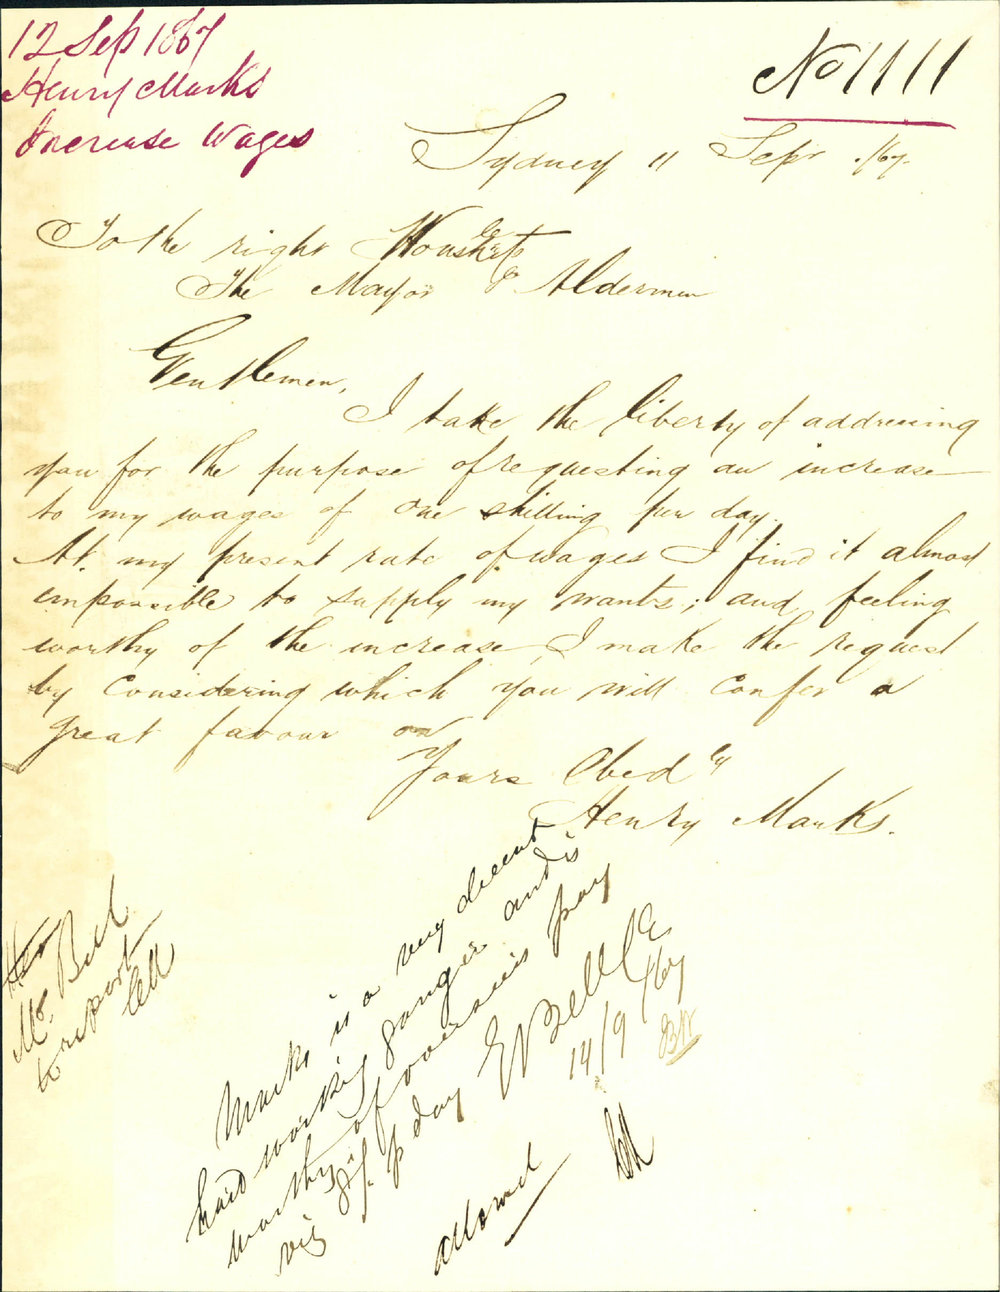 12 Sep 1867
Henry Marks
Increase Wages
No 1111
Sydney 11 Sepr /67.
To the right
The Mayor & Aldermen
Gentlemen,
I take the liberty of addressing
you for the purpose of requesting an increase
to my wages of one shilling per day.
At my present rate of wages I find it almost
impossible to supply my wants; and feeling
worthy of the increase, I make the request
by considering which you will confer a
great favour on
Yours Obedly
Henry Marks.
Mr. Bell
to report
Marks is a very decent
hard working ganger and is
worthy of overseers pay
viz 8/. p day
E Bell CE
14/9/67
allowed